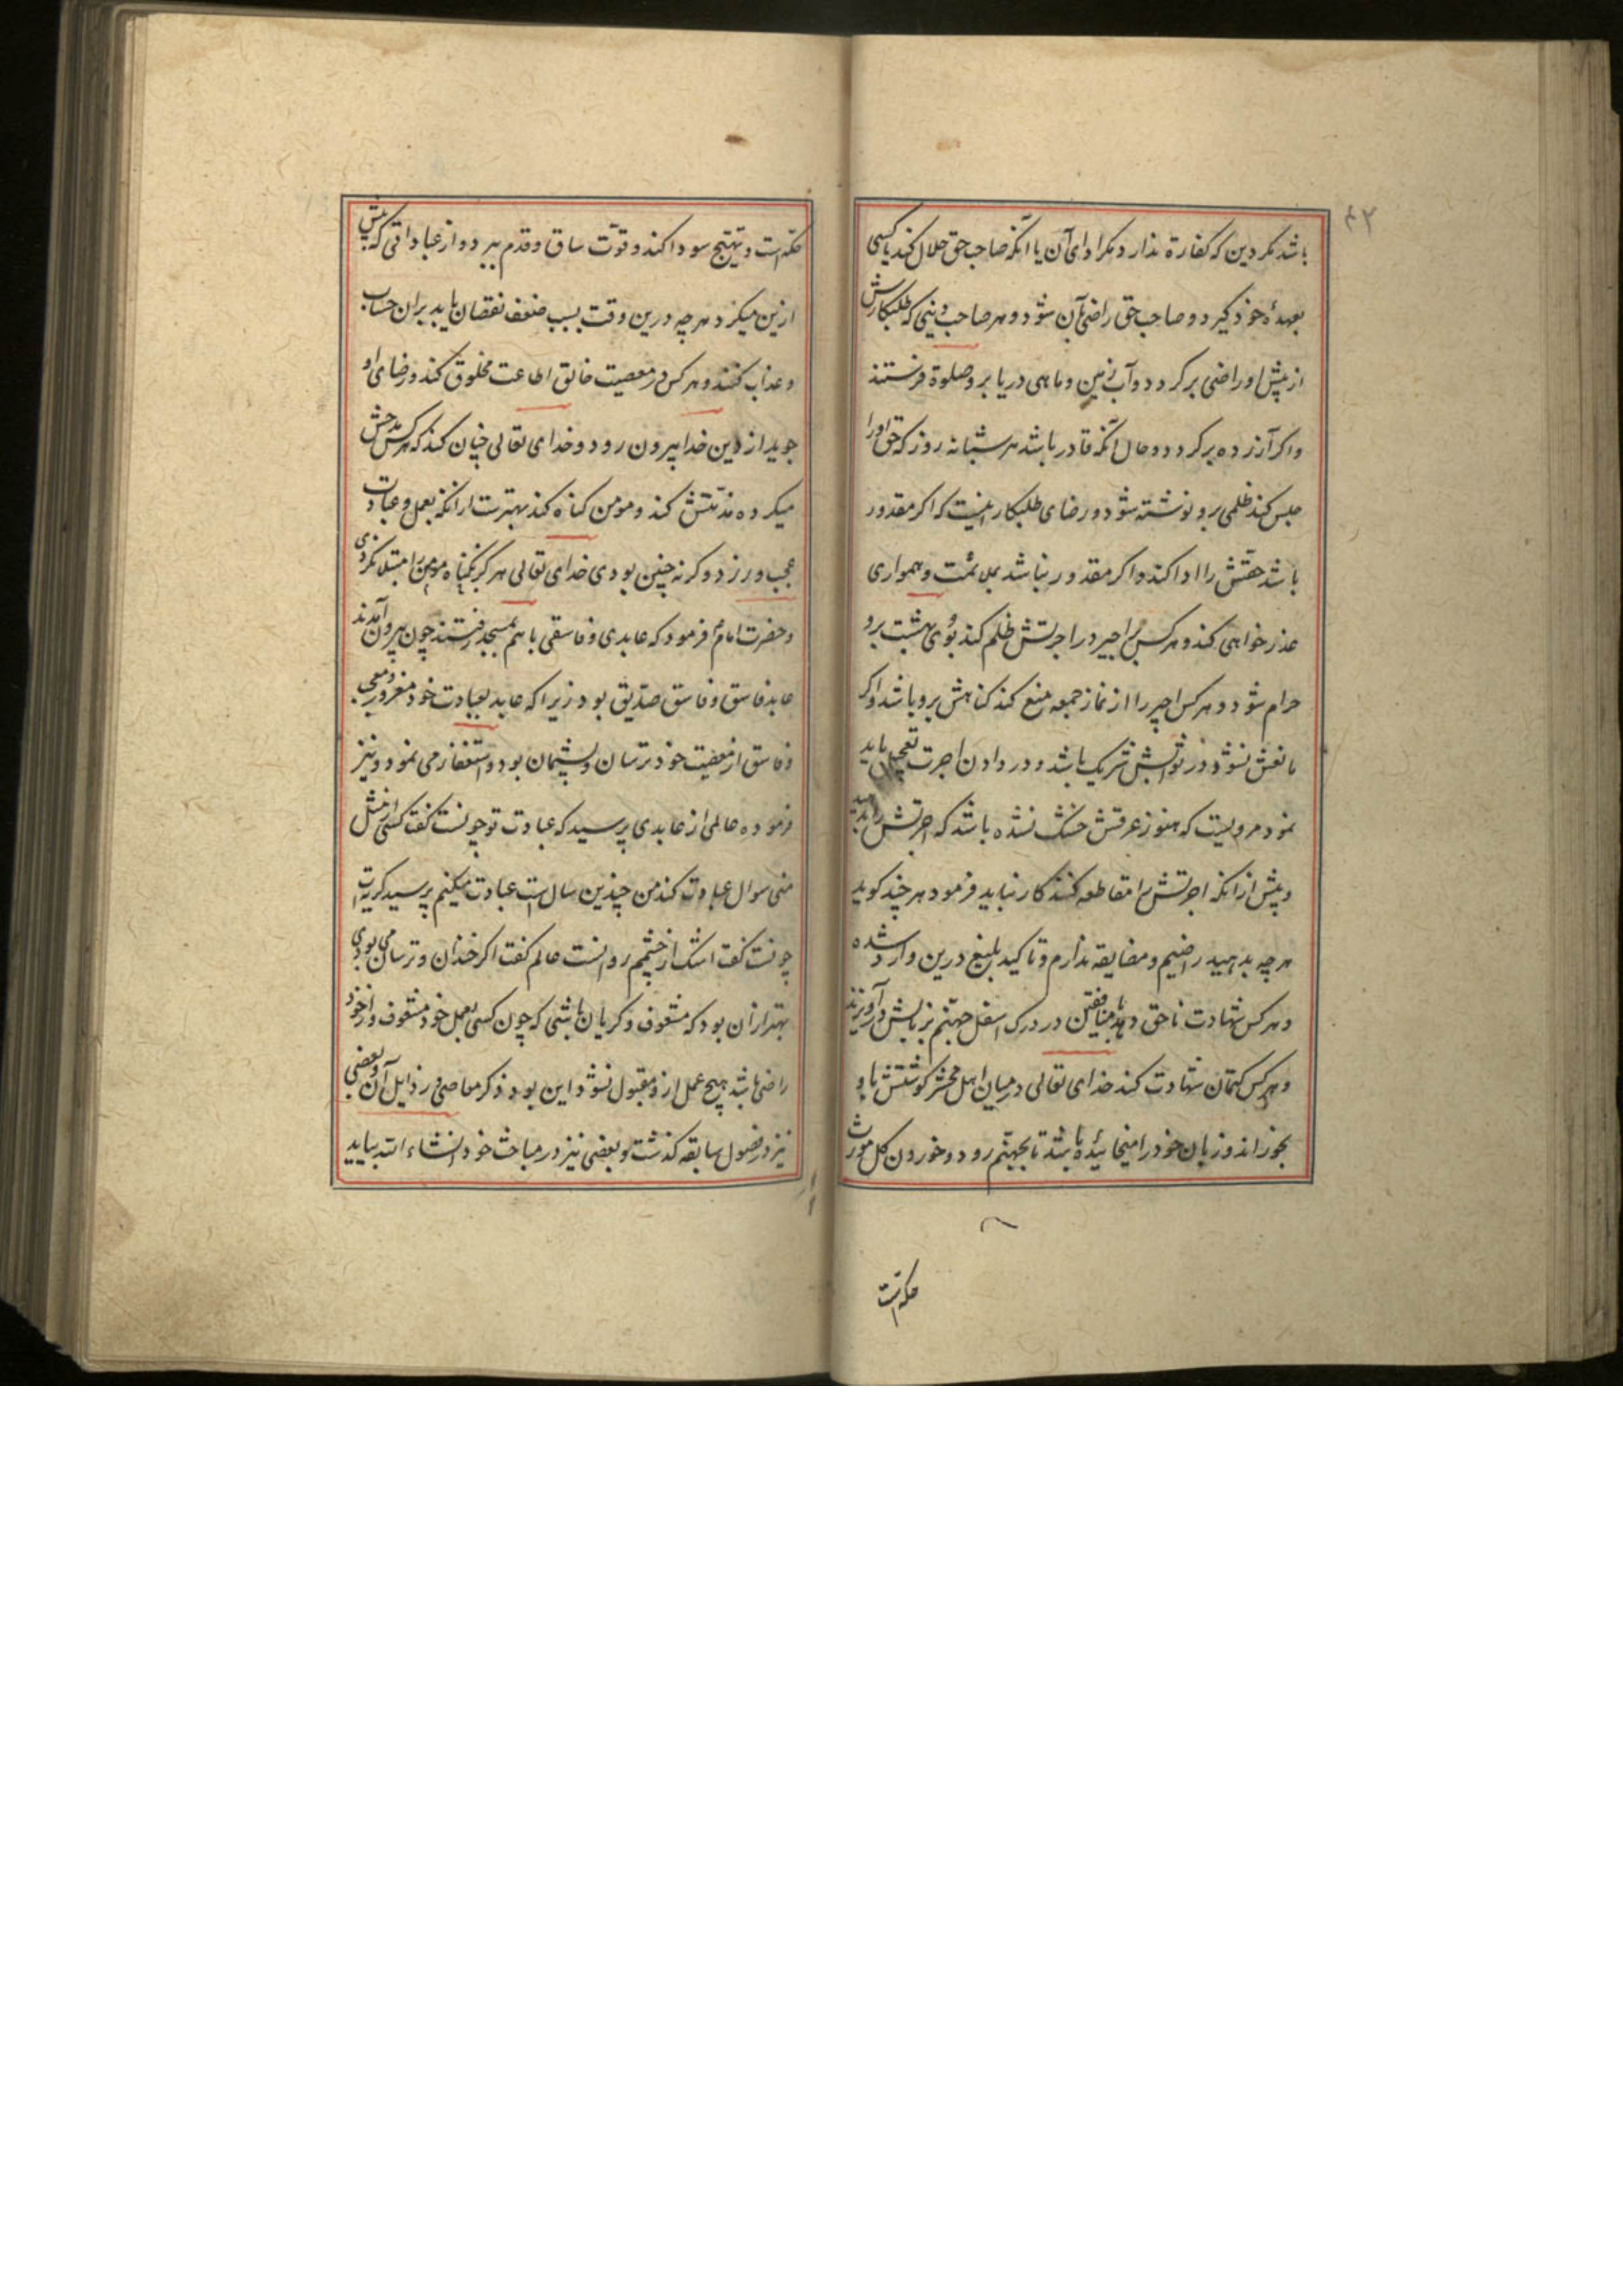 ۴۲
باشد مکر دین که کفارة ندارد مکر ادای آن یا آنکه صاحب حق حلال کند یا کسی
بعهدهٔ خود کیرد و صاحب حق راضی بآن شود و هر صاحب دینی که طلبکارش
از پیش او راضی برکردد دوآب زمین و ماهی دریا برو صلوة فرستند
و اکر آزرده برکردد و حال آنکه قادر باشد هر شبانه روز که حق او را
حبس کند ظلمی برو نوشته شود و رضای طلبکار اینست که اکر مقدور
باشد حقش را ادا کند و اکر مقدور نباشد بملائمت و همواری
عذر خواهی کند و هر کس بر اجیر در اجرتش ظلم کند بوی بهشت برو
حرام شود و هر کس اجیر را از نماز جمعه منع کند کناهش برو باشد و اکر
مانعش نشود در ثوابش شریک باشد و در دادن اجرت تعجیل باید
نمود مرویست که هنوز عرقش خشک نشده باشد که اجرتش را بدهید
و پیش از آنکه اجرتش را مقاطعه کنند کار نباید فرمود هر چند کوید
هر چه بدهید راضیم و مضایقه ندارم و تاکید بلیغ درین وارد شده
و هر کس شهادت ناحق دهد با منافقین در درک اسفل جهنم بزبانش درآویزند
و هر کس کتمان شهادت کند خدای تعالی در میان اهل محشر کوشتش باو
بخوراند و زبان خود را میخائیده باشد تا بجهنم رود و خوردن کل مورث
حکه است
حکه است و تهییج سودا کند و قوت ساق و قدم ببرد و از عباداتی که پیش
ازین میکرد هر چه درین وقت بسبب ضعف نقصان یابد بران حساب
و عذاب کنند و هر کس در معصیت خالق اطاعت مخلوق کند و رضای او
جوید از دین خدا بیرون رود و خدای تعالی چنان کند که هر کس مدحش
میکرده مذمتش کند و مومن کناه کند بهترست از انکه بعمل و عبادت
عجب ورزد و کر نه چنین بودی خدای تعالی هرکز بکناه مومن را مبتلا نکردی
و حضرت امام فرمود که عابدی و فاسقی با هم بمسجد رفتند چون بیرون آمدند
عابد فاسق و فاسق صدیق بود زیرا که عابد بعبادت خود مغرور و معجب
و فاسق از معصیت خود ترسان و پشیمان بود و استغفار می نمود و نیز
فرموده عالمی از عابدی پرسید که عبادت تو چونست کفت کسی از مثل
منی سوال عبادت کند من چندین سال است عبادت میکنم پرسید کریه ات
چونست کفت اشک از چشمم روانست عالم کفت اکر خندان و ترسان می بودی
بهتر از آن بود که مشعوف و کریان باشی که چون کسی بعمل خود مشعوف و از خود
راضی باشد هیچ عمل ازو مقبول نشود این بود ذکر معاصی و رذایل آن و بعضی
نیز در فصول سابقه کذشت و بعضی نیز در مباحث خود انشاء الله بیاید